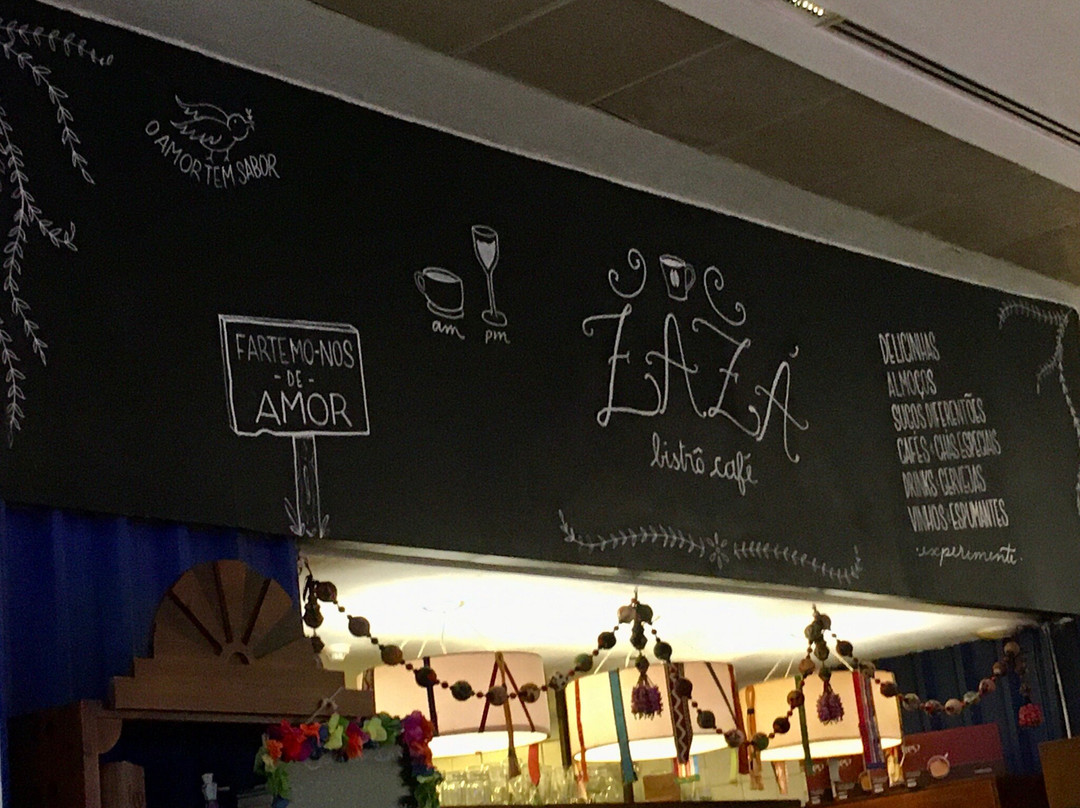 O AMOR TEM SABOR
FARTEMO-NOS
- DE -
AMOR
am pm
ZAZÁ
bistrô café
DELICINHAS
ALMOÇOS
SUCOS DIFERENTÕES
CAFÉS · CHÁS ESPECIAIS
DRINKS · CERVEJAS
VINHOS · ESPUMANTES
·experimente·